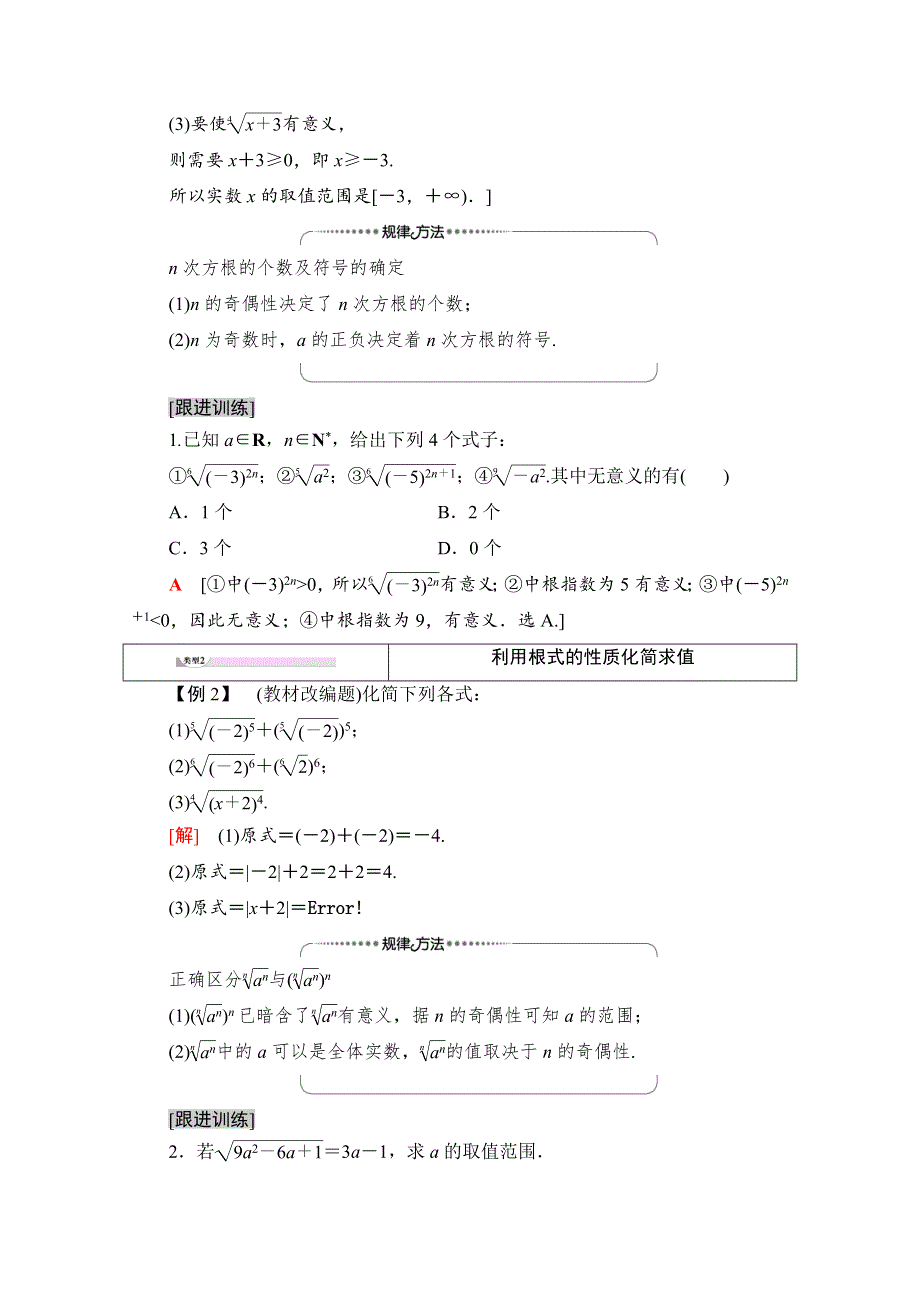 (3)要使⁴√(x+3)有意义，
则需要 x+3≥0，即 x≥-3.
所以实数 x 的取值范围是[-3，+∞)．]
规律方法
n 次方根的个数及符号的确定
(1)n 的奇偶性决定了 n 次方根的个数；
(2)n 为奇数时，a 的正负决定着 n 次方根的符号.
[跟进训练]
1.已知 a∈R，n∈N*，给出下列 4 个式子：
①⁶√((-3)²ⁿ)；②⁵√(a²)；③⁶√((-5)²ⁿ⁺¹)；④⁹√(-a²).其中无意义的有(　　)
A．1 个　　B．2 个
C．3 个　　D．0 个
A　[①中(-3)²ⁿ>0，所以⁶√((-3)²ⁿ)有意义；②中根指数为 5 有意义；③中(-5)²ⁿ
⁺¹<0，因此无意义；④中根指数为 9，有意义．选 A.]
类型2　利用根式的性质化简求值
【例 2】　(教材改编题)化简下列各式：
(1)⁵√((-2)⁵)+(⁵√(-2))⁵；
(2)⁶√((-2)⁶)+(⁶√2)⁶；
(3)⁴√((x+2)⁴).
[解]　(1)原式=(-2)+(-2)=-4.
(2)原式=|-2|+2=2+2=4.
(3)原式=|x+2|=Error!
规律方法
正确区分ⁿ√(aⁿ)与(ⁿ√(aⁿ))ⁿ
(1)(ⁿ√(aⁿ))ⁿ已暗含了ⁿ√(aⁿ)有意义，据 n 的奇偶性可知 a 的范围；
(2)ⁿ√(aⁿ)中的 a 可以是全体实数，ⁿ√(aⁿ)的值取决于 n 的奇偶性.
[跟进训练]
2．若√(9a²-6a+1)=3a-1，求 a 的取值范围．